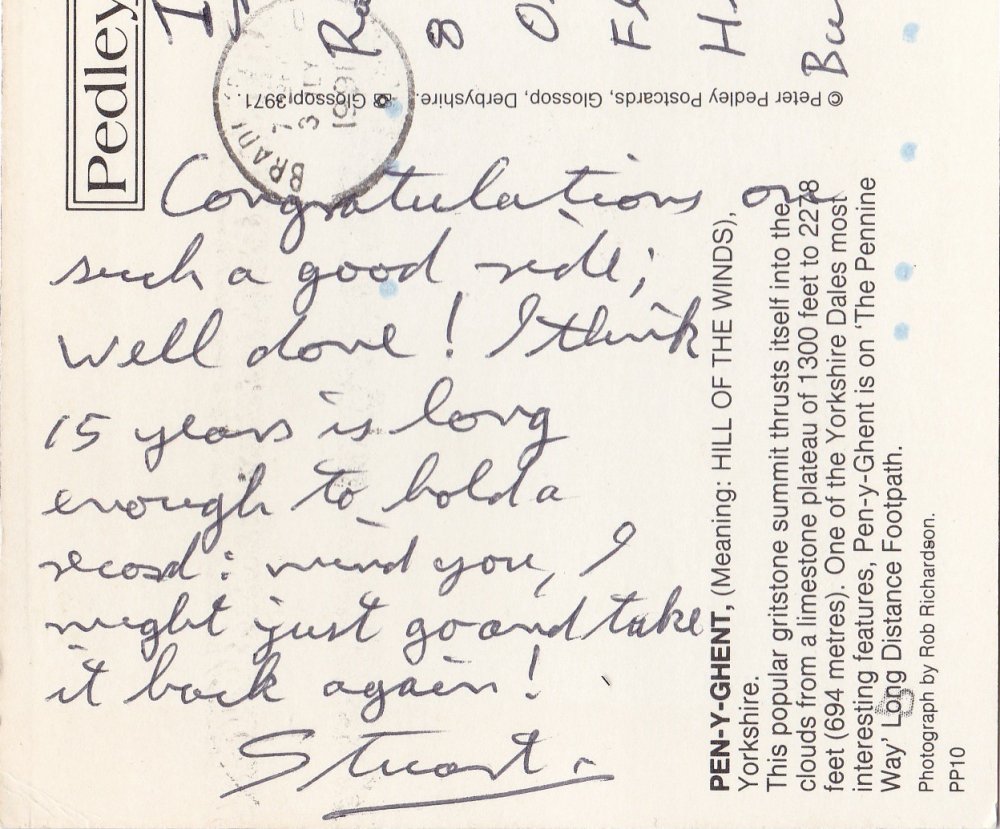 Congratulations on
such a good ride;
well done! I think
15 years is long
enough to hold a
record: mind you, I
might just go and take
it back again!
Stuart.
PEN-Y-GHENT, (Meaning: HILL OF THE WINDS),
Yorkshire.
This popular gritstone summit thrusts itself into the
clouds from a limestone plateau of 1300 feet to 2278
feet (694 metres). One of the Yorkshire Dales most
interesting features, Pen-y-Ghent is on 'The Pennine
Way' Long Distance Footpath.
Photograph by Rob Richardson.
PP10
© Peter Pedley Postcards, Glossop, Derbyshire. Glossop 3971.
Pedley
BRAD
3 LY
1991
8